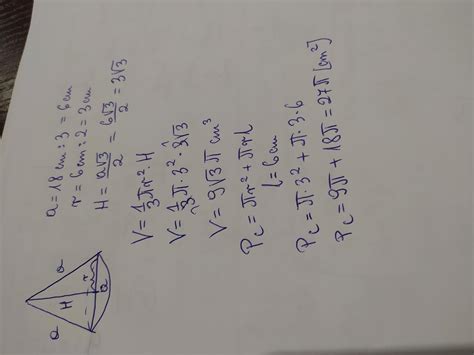 a = 18cm : 3 = 6cm
r = 6cm : 2 = 3cm
H = a√3/2 = 6√3/2 = 3√3
V = 1/3 πr² · H
V = 1/3 π · 3² · 3√3
V = 9√3 π cm³
Pc = πr² + πrl
l = 6cm
Pc = π · 3² + π · 3 · 6
Pc = 9π + 18π = 27π [cm²]
a
a
H
r
a